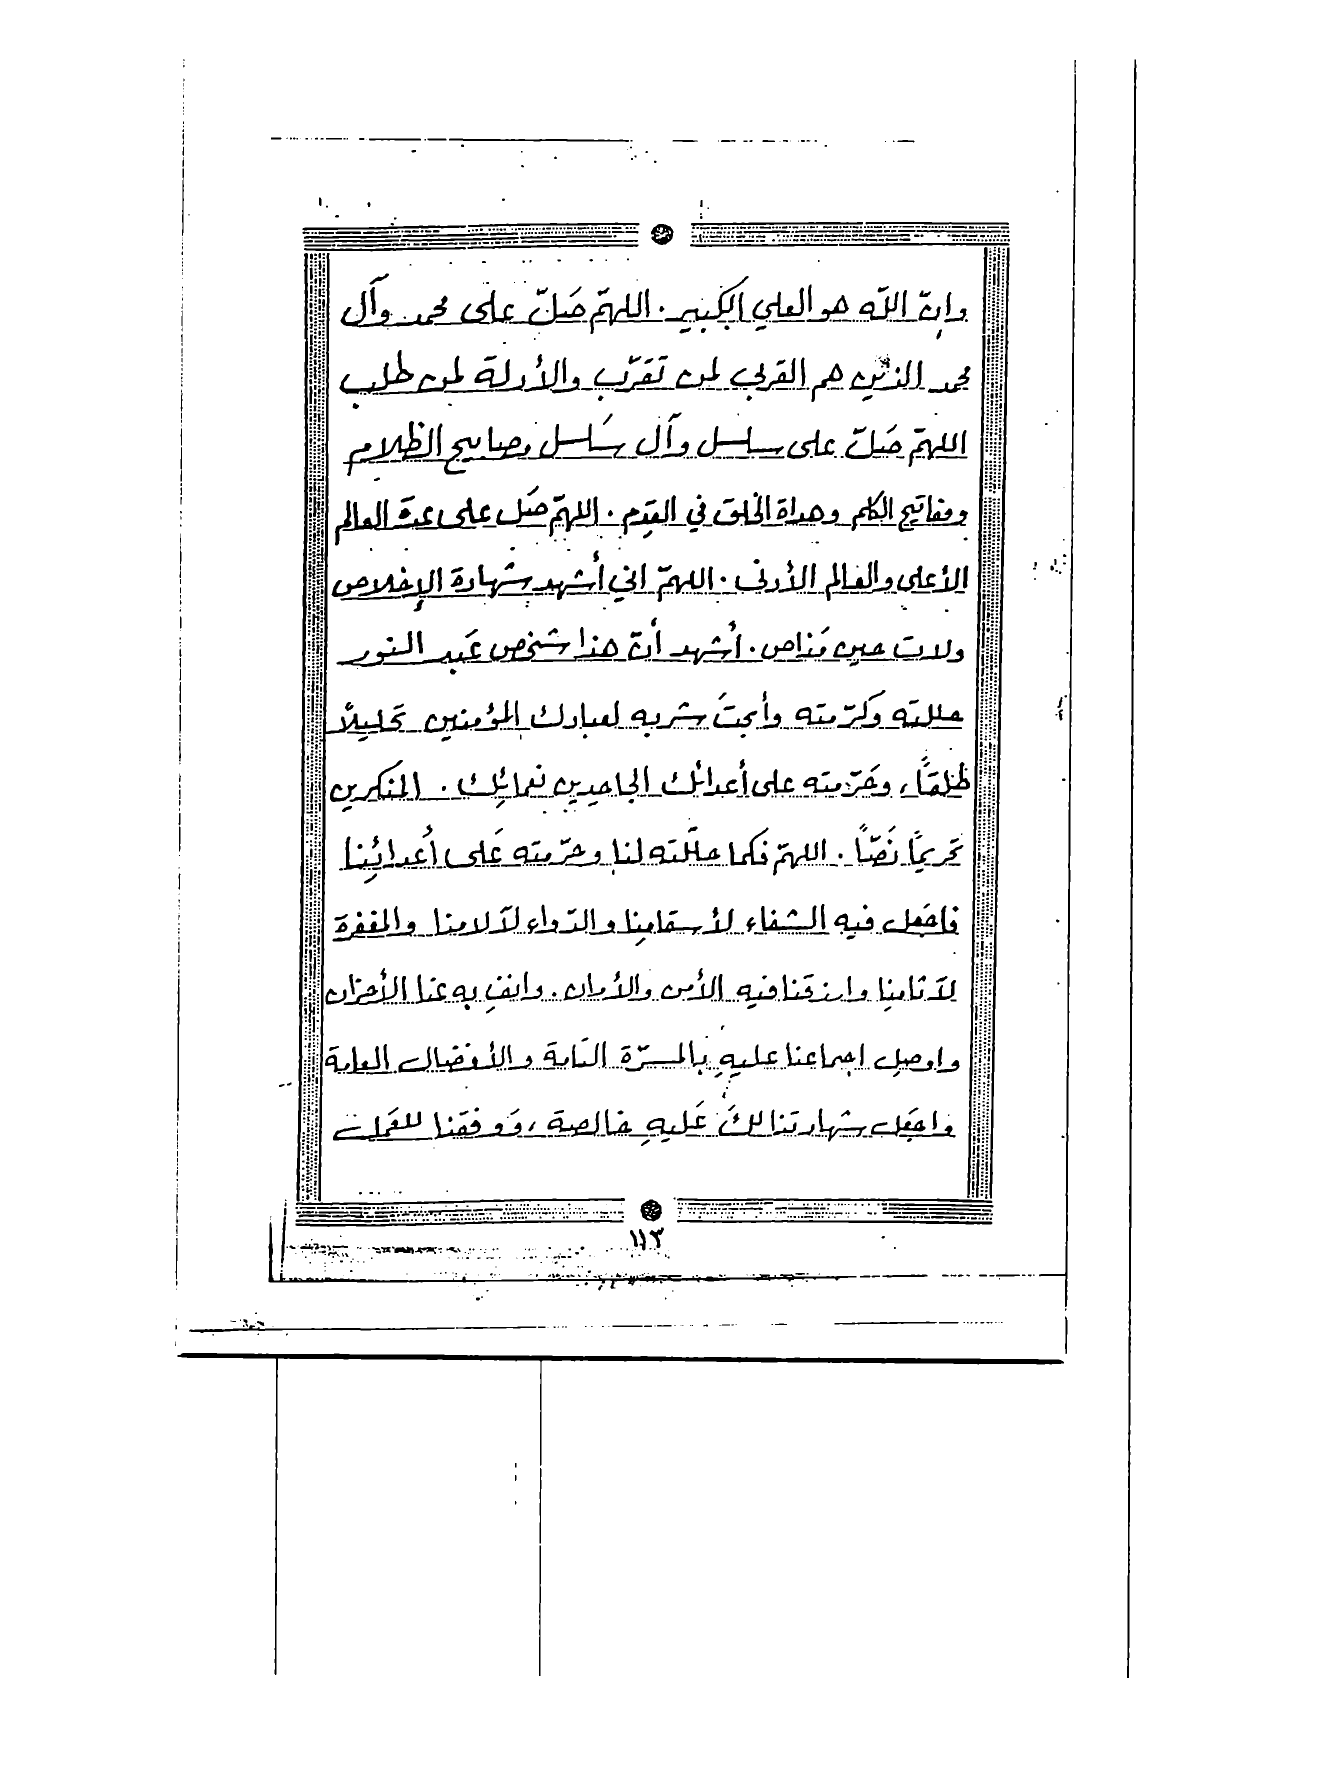 وانّ الله هو العلي الكبير. اللهمّ صَلّ على محمد وآل
محمد الذين هم القربى لمن تقرّب والأدلة لمن طلب
اللهمّ صَلّ على سلسل وآل سَلسل مصابيح الظلام
ومفاتيح الكلم وهداة الخلق في القِدم. اللهمّ صَل على عمَد العالم
الأعلى والعالم الأدنى. اللهمّ اني أشهد شهادة الإخلاص
ولات حين مَناص. أشهد أنّ هذا شخص عَبد النور
حللته وكرّمته وأبحتَ شربه لعبادك المؤمنين تحَليلاً
طلقاً، وحَرّمته على أعدائك الجاحدين نعمائِك. المنكرين
تحريماً نَصّاً. اللهمّ فكما حلّلته لنا وحرّمته عَلى أعدائِنا
فاجعَل فيه الشفاء لأسقامِنا والدّواء لآلامنا والمغفرة
لآثامِنا وارزقنا فيه الأمن والأمان. وانفِ به عنا الأحزان
واوصِل اجماعنا عليهِ بالمسرّة التَامة والأفضال العامة
واجعَل شهادتنا لكَ عَليهِ خالصة، وَوفقنا للعَمل
١١٣